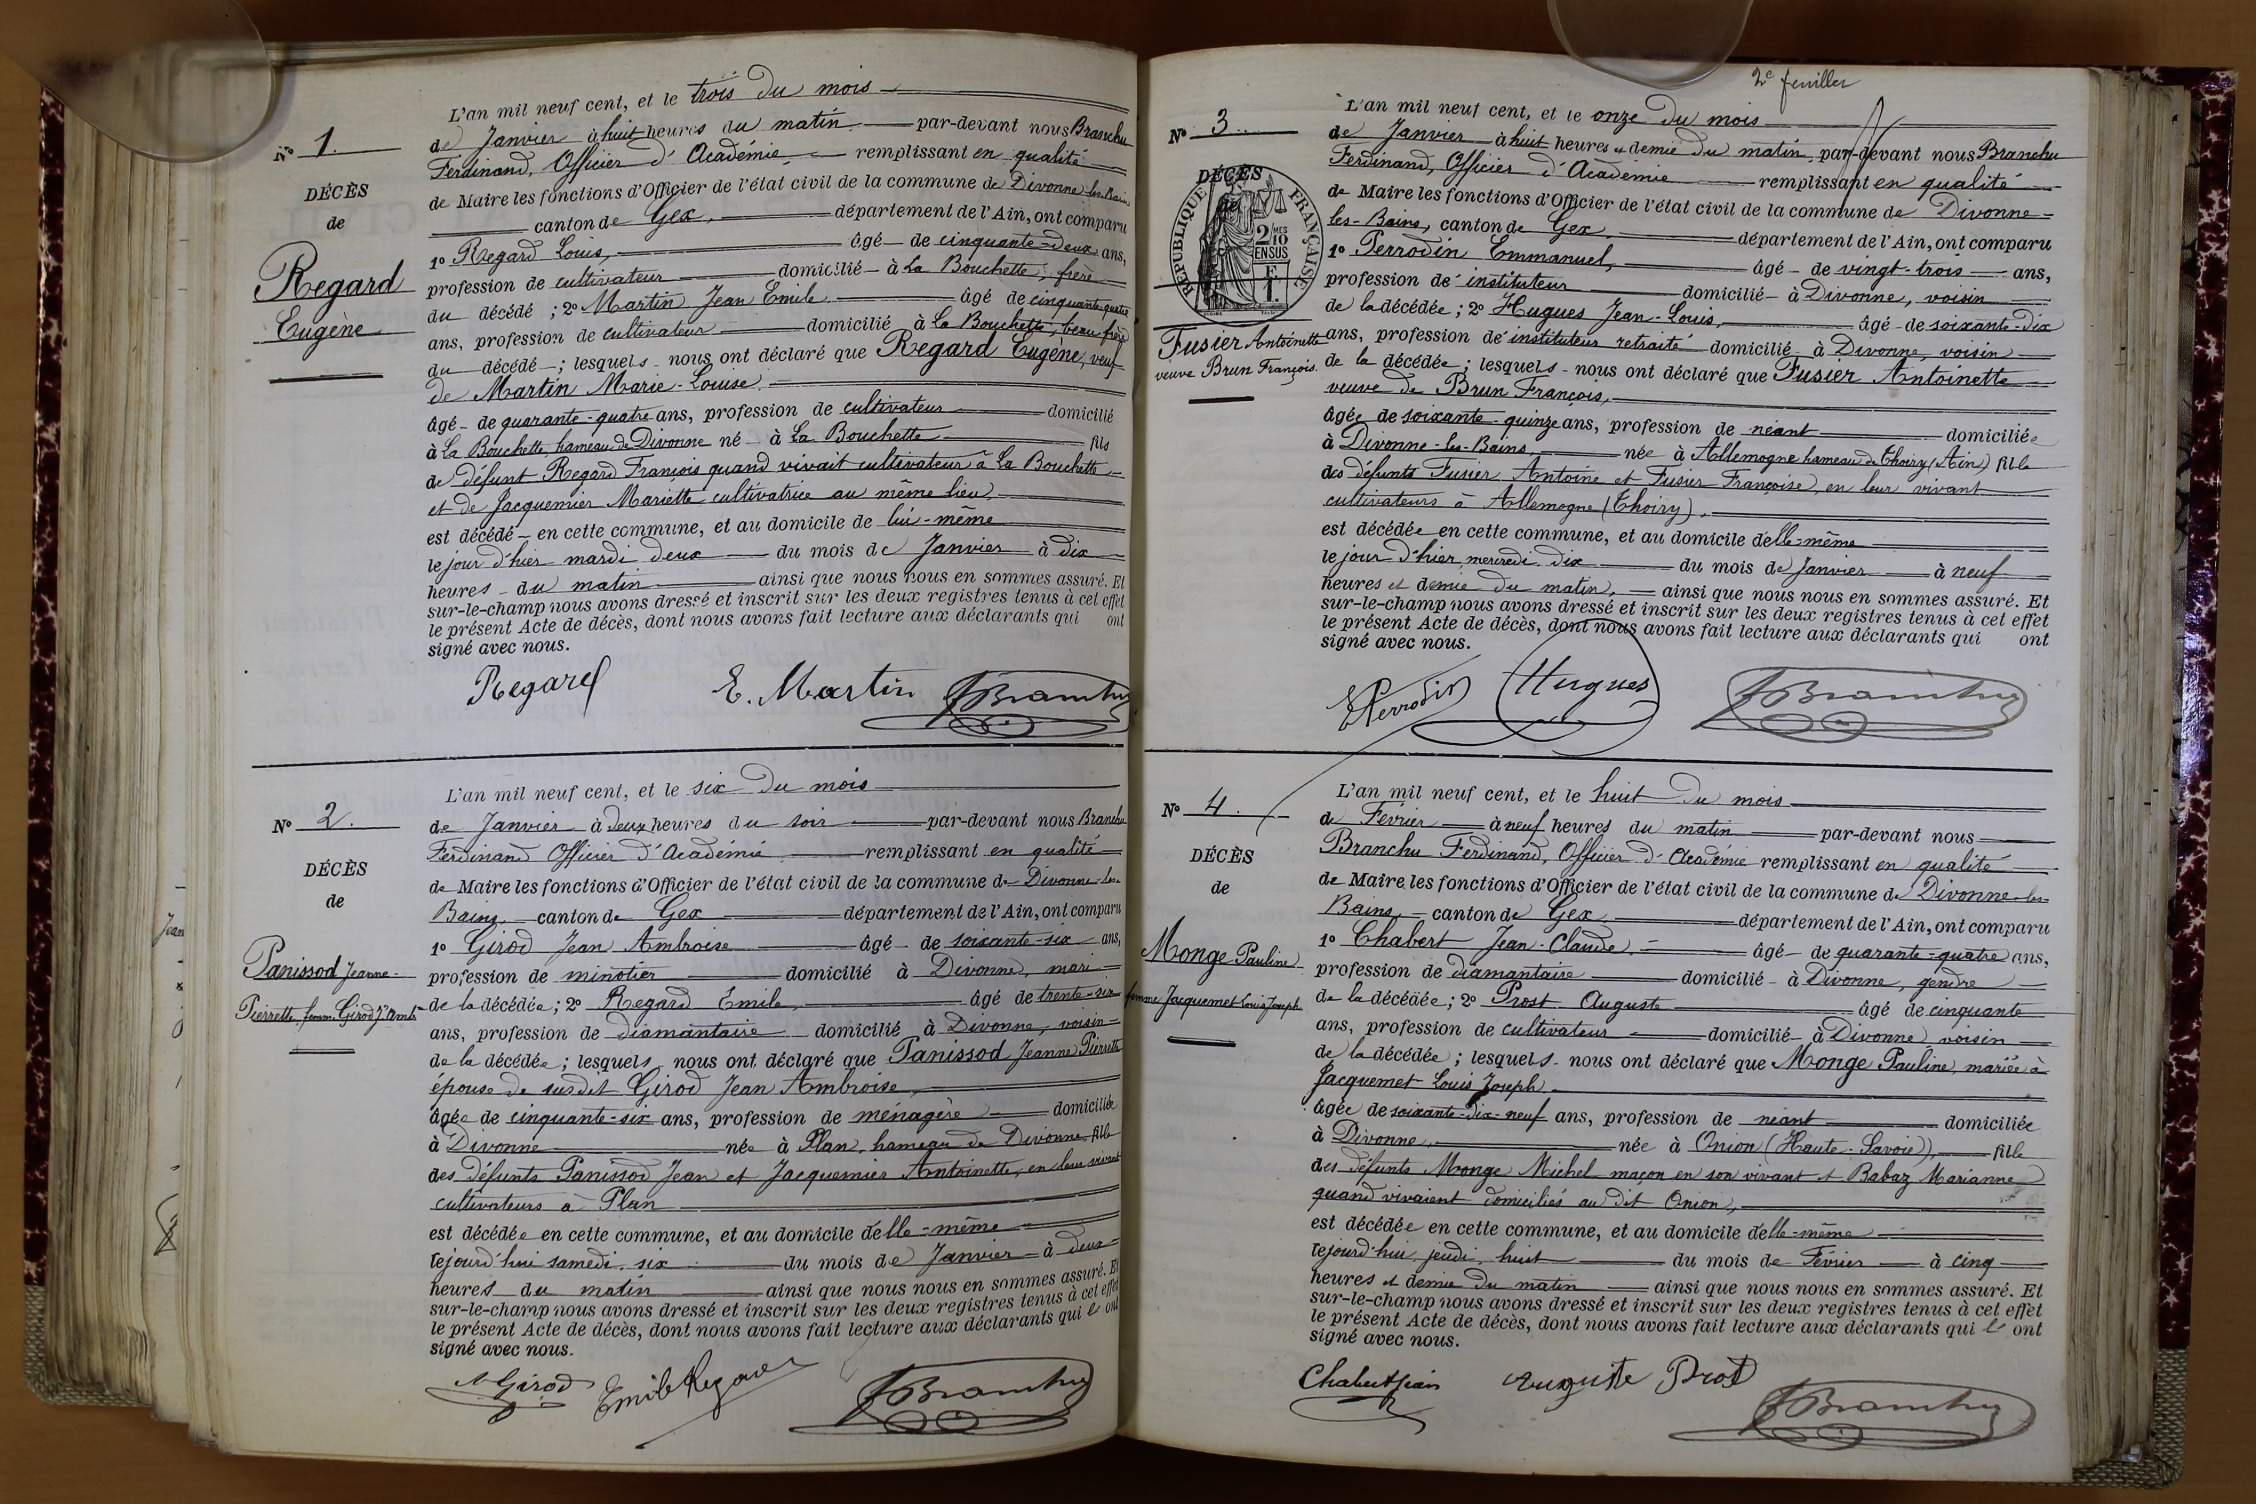 L'an mil neuf cent, et le trois du mois
N° 1.
de Janvier à huit heures du matin par-devant nous Branchu
Ferdinand, Officier d'Académie remplissant en qualité
DÉCÈS
de Maire les fonctions d'Officier de l'état civil de la commune de Divonne-les-Bains
de
canton de Gex, département de l'Ain, ont comparu
1° Regard Louis, âgé de cinquante-deux ans,
Regard
profession de cultivateur domicilié à La Bouchette, frère
Eugène
du décédé ; 2° Martin Jean Emile âgé de cinquante-quatre
ans, profession de cultivateur domicilié à La Bouchette, beau-frère
du décédé ; lesquels nous ont déclaré que Regard Eugène, veuf
de Martin Marie-Louise,
âgé de quarante-quatre ans, profession de cultivateur domicilié
à La Bouchette, hameau de Divonne né à La Bouchette fils
de défunt Regard François quand vivait cultivateur à La Bouchette
et de Jacquemier Mariette cultivatrice au même lieu,
est décédé en cette commune, et au domicile de lui-même
le jour d'hier mardi deux du mois de Janvier à dix
heures du matin ainsi que nous nous en sommes assuré. Et
sur-le-champ nous avons dressé et inscrit sur les deux registres tenus à cet effet
le présent Acte de décès, dont nous avons fait lecture aux déclarants qui ont
signé avec nous.
Regard E. Martin FBranchu
L'an mil neuf cent, et le six du mois
N° 2.
de Janvier à deux heures du soir par-devant nous Branchu
Ferdinand Officier d'Académie remplissant en qualité
DÉCÈS
de Maire les fonctions d'Officier de l'état civil de la commune de Divonne-les-
de
Bains canton de Gex département de l'Ain, ont comparu
1° Girod Jean Ambroise âgé de soixante-six ans,
Panissod Jeanne-
profession de minotier domicilié à Divonne, mari
Pierrette, femme Girod Jn Ambse
de la décédée ; 2° Regard Emile, âgé de trente-six
ans, profession de diamantaire domicilié à Divonne, voisin
de la décédée ; lesquels nous ont déclaré que Panissod Jeanne Pierrette
épouse de susdit Girod Jean Ambroise,
âgée de cinquante-six ans, profession de ménagère domiciliée
à Divonne née à Plan, hameau de Divonne fille
des défunts Panissod Jean et Jacquemier Antoinette, en leur vivant
cultivateurs à Plan
est décédée en cette commune, et au domicile d'elle-même
le jourd'hui samedi, six du mois de Janvier à deux
heures du matin ainsi que nous nous en sommes assuré. Et
sur-le-champ nous avons dressé et inscrit sur les deux registres tenus à cet effet
le présent Acte de décès, dont nous avons fait lecture aux déclarants qui l'ont
signé avec nous.
A Girod Emile Regard FBranchu
2e feuillet
L'an mil neuf cent, et le onze du mois
N° 3
de Janvier à huit heures et demie du matin, par-devant nous Branchu
Ferdinand, Officier d'Académie remplissant en qualité
DÉCÈS
RÉPUBLIQUE FRANÇAISE
2/10MES EN SUS
de Maire les fonctions d'Officier de l'état civil de la commune de Divonne-
les-Bains, canton de Gex, département de l'Ain, ont comparu
1° Perrodin Emmanuel, âgé de vingt-trois ans,
profession de instituteur domicilié à Divonne, voisin
de la décédée ; 2° Hugues Jean-Louis, âgé de soixante-dix
Fusier Antoinette
ans, profession de instituteur retraité domicilié à Divonne, voisin
veuve Brun François.
de la décédée ; lesquels nous ont déclaré que Fusier Antoinette
veuve de Brun François,
âgée de soixante-quinze ans, profession de néant domiciliée
à Divonne-les-Bains, née à Allemogne hameau de Thoiry (Ain) fille
des défunts Fusier Antoine et Fusier Françoise, en leur vivant
cultivateurs à Allemogne (Thoiry),
est décédée en cette commune, et au domicile d'elle-même
le jour d'hier mercredi dix du mois de Janvier à neuf
heures et demie du matin, ainsi que nous nous en sommes assuré. Et
sur-le-champ nous avons dressé et inscrit sur les deux registres tenus à cet effet
le présent Acte de décès, dont nous avons fait lecture aux déclarants qui ont
signé avec nous.
EPerrodin Hugues FBranchu
L'an mil neuf cent, et le huit du mois
N° 4.
de Février à neuf heures du matin par-devant nous
Branchu Ferdinand, Officier d'Académie remplissant en qualité
DÉCÈS
de Maire les fonctions d'Officier de l'état civil de la commune de Divonne-les-
de
Bains, canton de Gex département de l'Ain, ont comparu
1° Chabert Jean-Claude, âgé de quarante-quatre ans,
Monge Pauline
profession de diamantaire domicilié à Divonne, gendre
femme Jacquemet Louis Joseph
de la décédée ; 2° Prost Auguste âgé de cinquante
ans, profession de cultivateur domicilié à Divonne voisin
de la décédée ; lesquels nous ont déclaré que Monge Pauline, mariée à
Jacquemet Louis Joseph
âgée de soixante-dix-neuf ans, profession de néant domiciliée
à Divonne, née à Onion (Haute-Savoie), fille
des défunts Monge Michel maçon en son vivant et Babaz Marianne
quand vivaient domiciliés au dit Onion,
est décédée en cette commune, et au domicile d'elle-même
le jourd'hui, jeudi, huit du mois de Février à cinq
heures et demie du matin ainsi que nous nous en sommes assuré. Et
sur-le-champ nous avons dressé et inscrit sur les deux registres tenus à cet effet
le présent Acte de décès, dont nous avons fait lecture aux déclarants qui l'ont
signé avec nous.
Chabert Jean Auguste Prost FBranchu